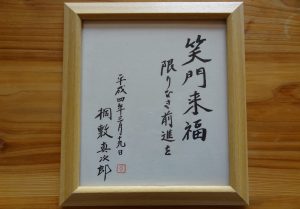 笑門来福
限りなき前進を
平成四年三月十九日
桐敷真次郎